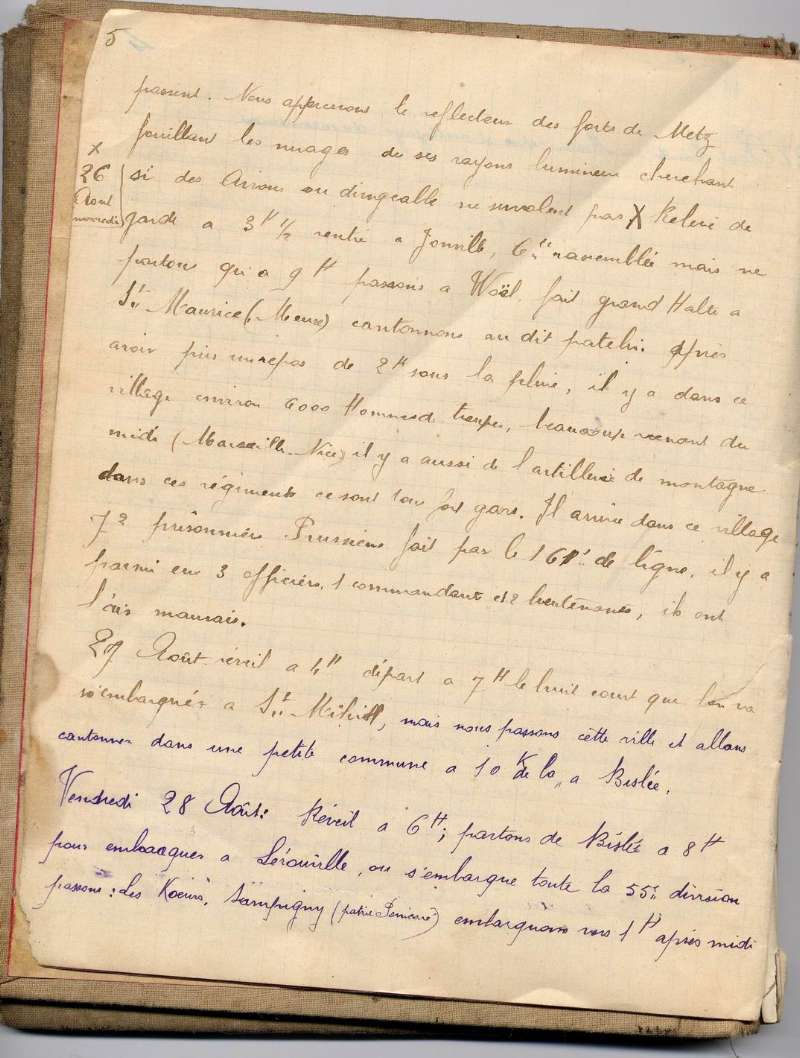 5
passent. Nous appercevons le reflecteur des forts de Metz
fouillant les nuages de ses rayons lumineux cherchant
x
26
Aout
mercredi
si des Avions ou dirigeable ne survolent pas X Releve de
garde a 3H 1/2 rentré a Jonville, 6H rassemblée mais ne
partons qu'a 9H passons a Woël fait grand Halte a
St Maurice (Meuse) cantonnons au dit patelin. Après
avoir pris un repos de 2H sous la pluie, il y a dans ce
village environ 6000 Hommes de troupe, beaucoup venant du
midi (Marseille Nice) il y a aussi de l'artillerie de montagne
dans ces régiments ce sont tous des gars. Il arrive dans ce village
72 prisonniers Prussiens fait par le 161e de ligne, il y a
parmi eux 3 officiers, 1 commandant et 2 lieutenants, ils ont
l'air mauvais.
27 Août réveil a 4H départ a 7H le bruit court que l'on va
s'embarquer a St Mihiel, mais nous passons cette ville et allons
cantonner dans une petite commune a 10 K de la, a Bislée.
Vendredi 28 Août: Réveil a 6H; partons de Bislée a 8H
pour embarquer a Lérouville, ou s'embarque toute la 55e division
passons: les Koeurs, Sampigny (patrie Poincaré) embarquons vers 1H après midi